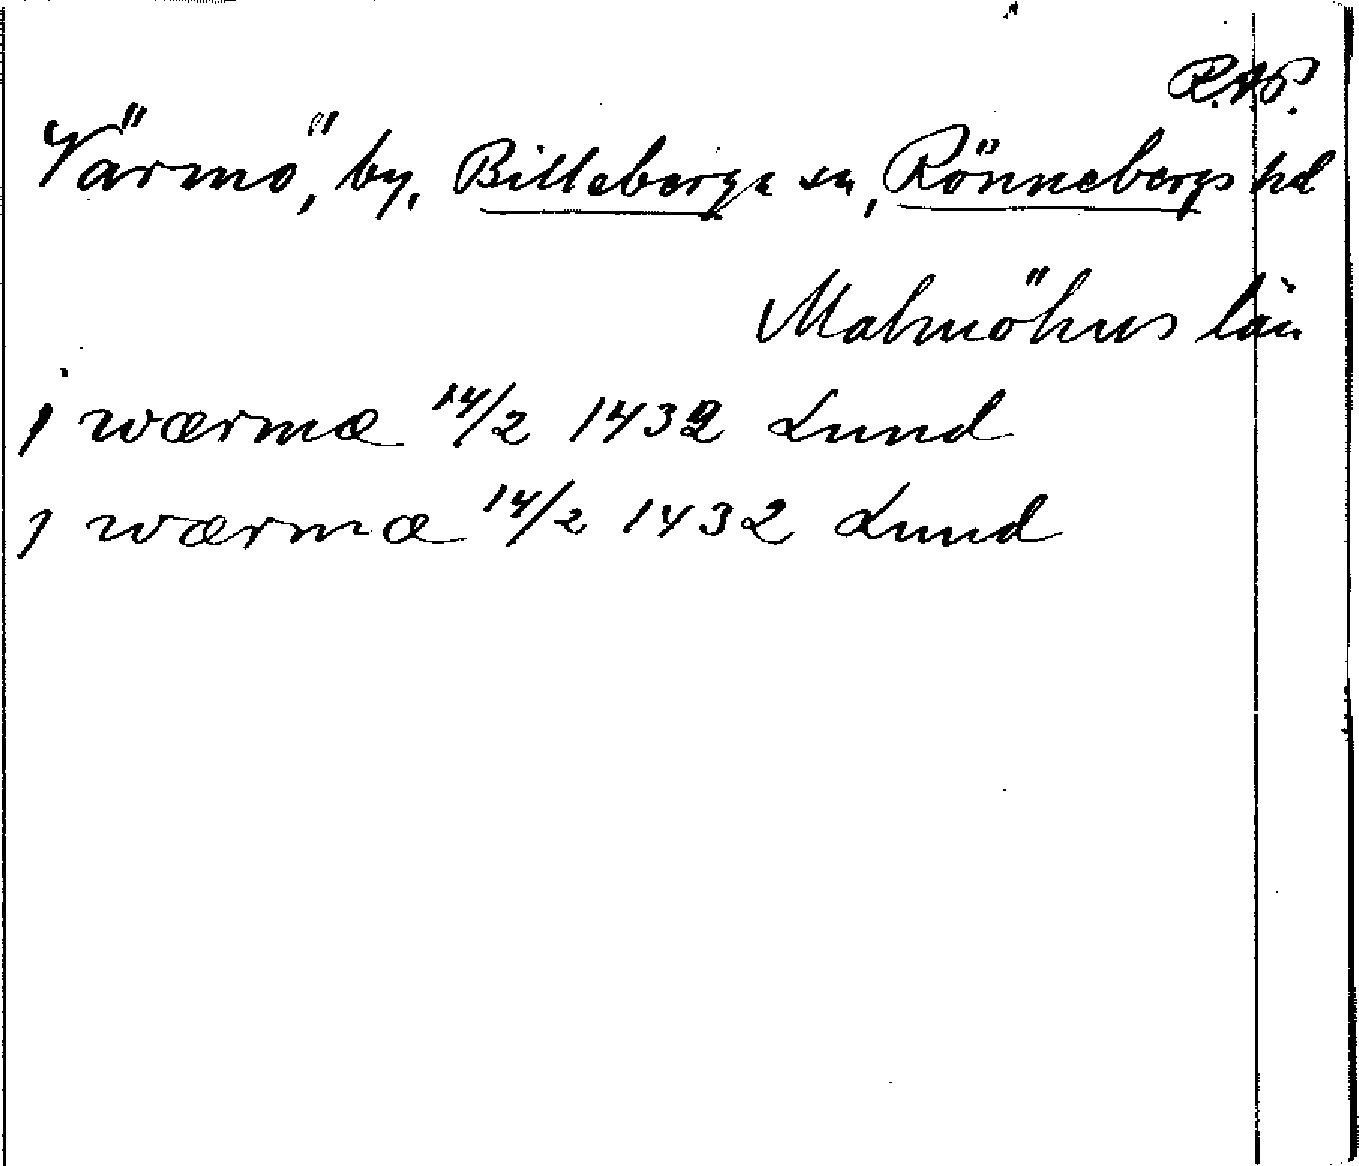 R.A.P.
Värmö, by, Billeberga sn, Rönnebergs hd
Malmöhus län
j wærmæ 14/2 1432 Lund
j wærmæ 14/2 1432 Lund